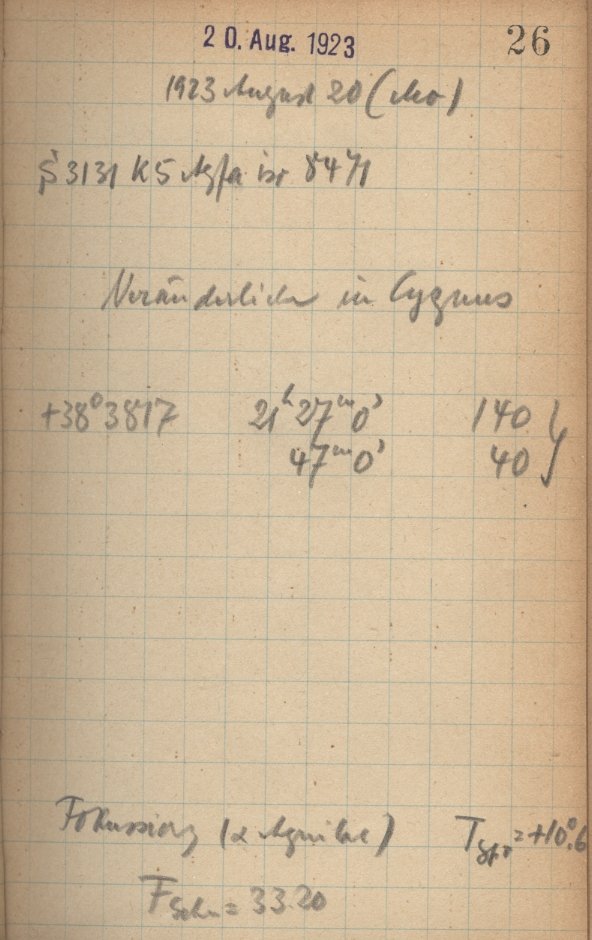 20. Aug. 1923 26
1923 August 20 (Mo)
S 3131 K5 Agfa iso 8471
Veränderlicher in Cygnus
+38° 3817 21ʰ 27ᵐ 0ˢ 140 }
47ᵐ 0ˢ 40
Fokussierg (α Aquilae) T = +10°.6
F = 33.20